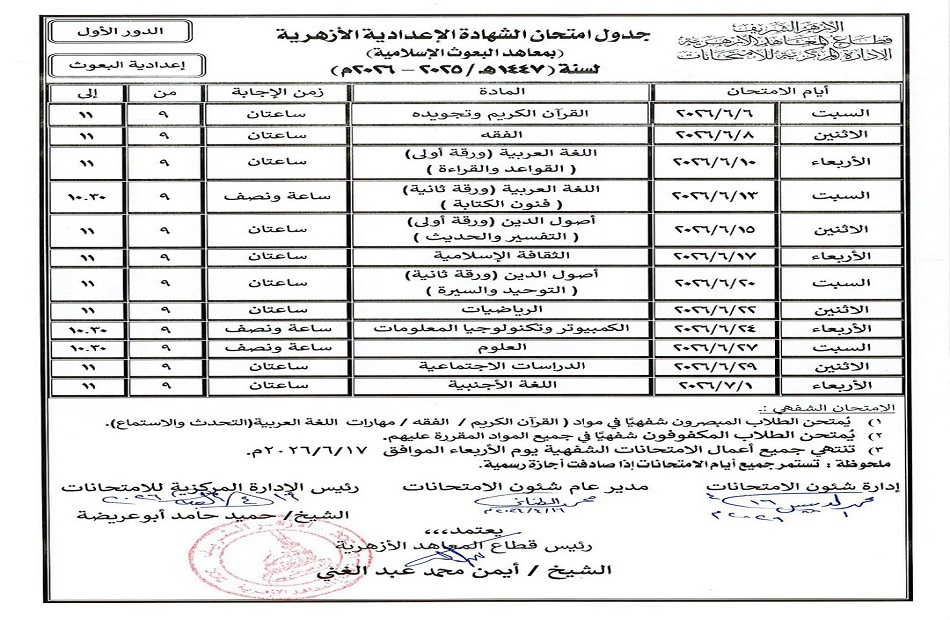 الأزهر الشريف
قطاع المعاهد الأزهرية
الإدارة المركزية للامتحانات
جدول امتحان الشهادة الإعدادية الأزهرية
(بمعاهد البعوث الإسلامية)
لسنة (١٤٤٧هـ/٢٠٢٥ – ٢٠٢٦م)
الدور الأول
إعدادية البعوث
أيام الامتحان المادة زمن الإجابة من إلى
السبت ٢٠٢٦/٦/٦ القرآن الكريم وتجويده ساعتان ٩ ١١
الاثنين ٢٠٢٦/٦/٨ الفقه ساعتان ٩ ١١
الأربعاء ٢٠٢٦/٦/١٠ اللغة العربية (ورقة أولى) ( القواعد والقراءة ) ساعتان ٩ ١١
السبت ٢٠٢٦/٦/١٣ اللغة العربية (ورقة ثانية) ( فنون الكتابة ) ساعة ونصف ٩ ١٠.٣٠
الاثنين ٢٠٢٦/٦/١٥ أصول الدين (ورقة أولى) ( التفسير والحديث ) ساعتان ٩ ١١
الأربعاء ٢٠٢٦/٦/١٧ الثقافة الإسلامية ساعتان ٩ ١١
السبت ٢٠٢٦/٦/٢٠ أصول الدين (ورقة ثانية) ( التوحيد والسيرة ) ساعتان ٩ ١١
الاثنين ٢٠٢٦/٦/٢٢ الرياضيات ساعتان ٩ ١١
الأربعاء ٢٠٢٦/٦/٢٤ الكمبيوتر وتكنولوجيا المعلومات ساعة ونصف ٩ ١٠.٣٠
السبت ٢٠٢٦/٦/٢٧ العلوم ساعة ونصف ٩ ١٠.٣٠
الاثنين ٢٠٢٦/٦/٢٩ الدراسات الاجتماعية ساعتان ٩ ١١
الأربعاء ٢٠٢٦/٧/١ اللغة الأجنبية ساعتان ٩ ١١
الامتحان الشفهي :.
١) يُمتحن الطلاب المبصرون شفهيًا في مواد ( القرآن الكريم / الفقه / مهارات اللغة العربية(التحدث والاستماع).
٢) يُمتحن الطلاب المكفوفون شفهيًا في جميع المواد المقررة عليهم.
٣) تنتهي جميع أعمال الامتحانات الشفهية يوم الأربعاء الموافق ٢٠٢٦/٦/١٧م.
ملحوظة : تستمر جميع أيام الامتحانات إذا صادفت أجازة رسمية.
إدارة شئون الامتحانات مدير عام شئون الامتحانات رئيس الإدارة المركزية للامتحانات
الشيخ/ حميد حامد أبوعريضة
يعتمد،،،،
رئيس قطاع المعاهد الأزهرية
الشيخ / أيمن محمد عبد الغني